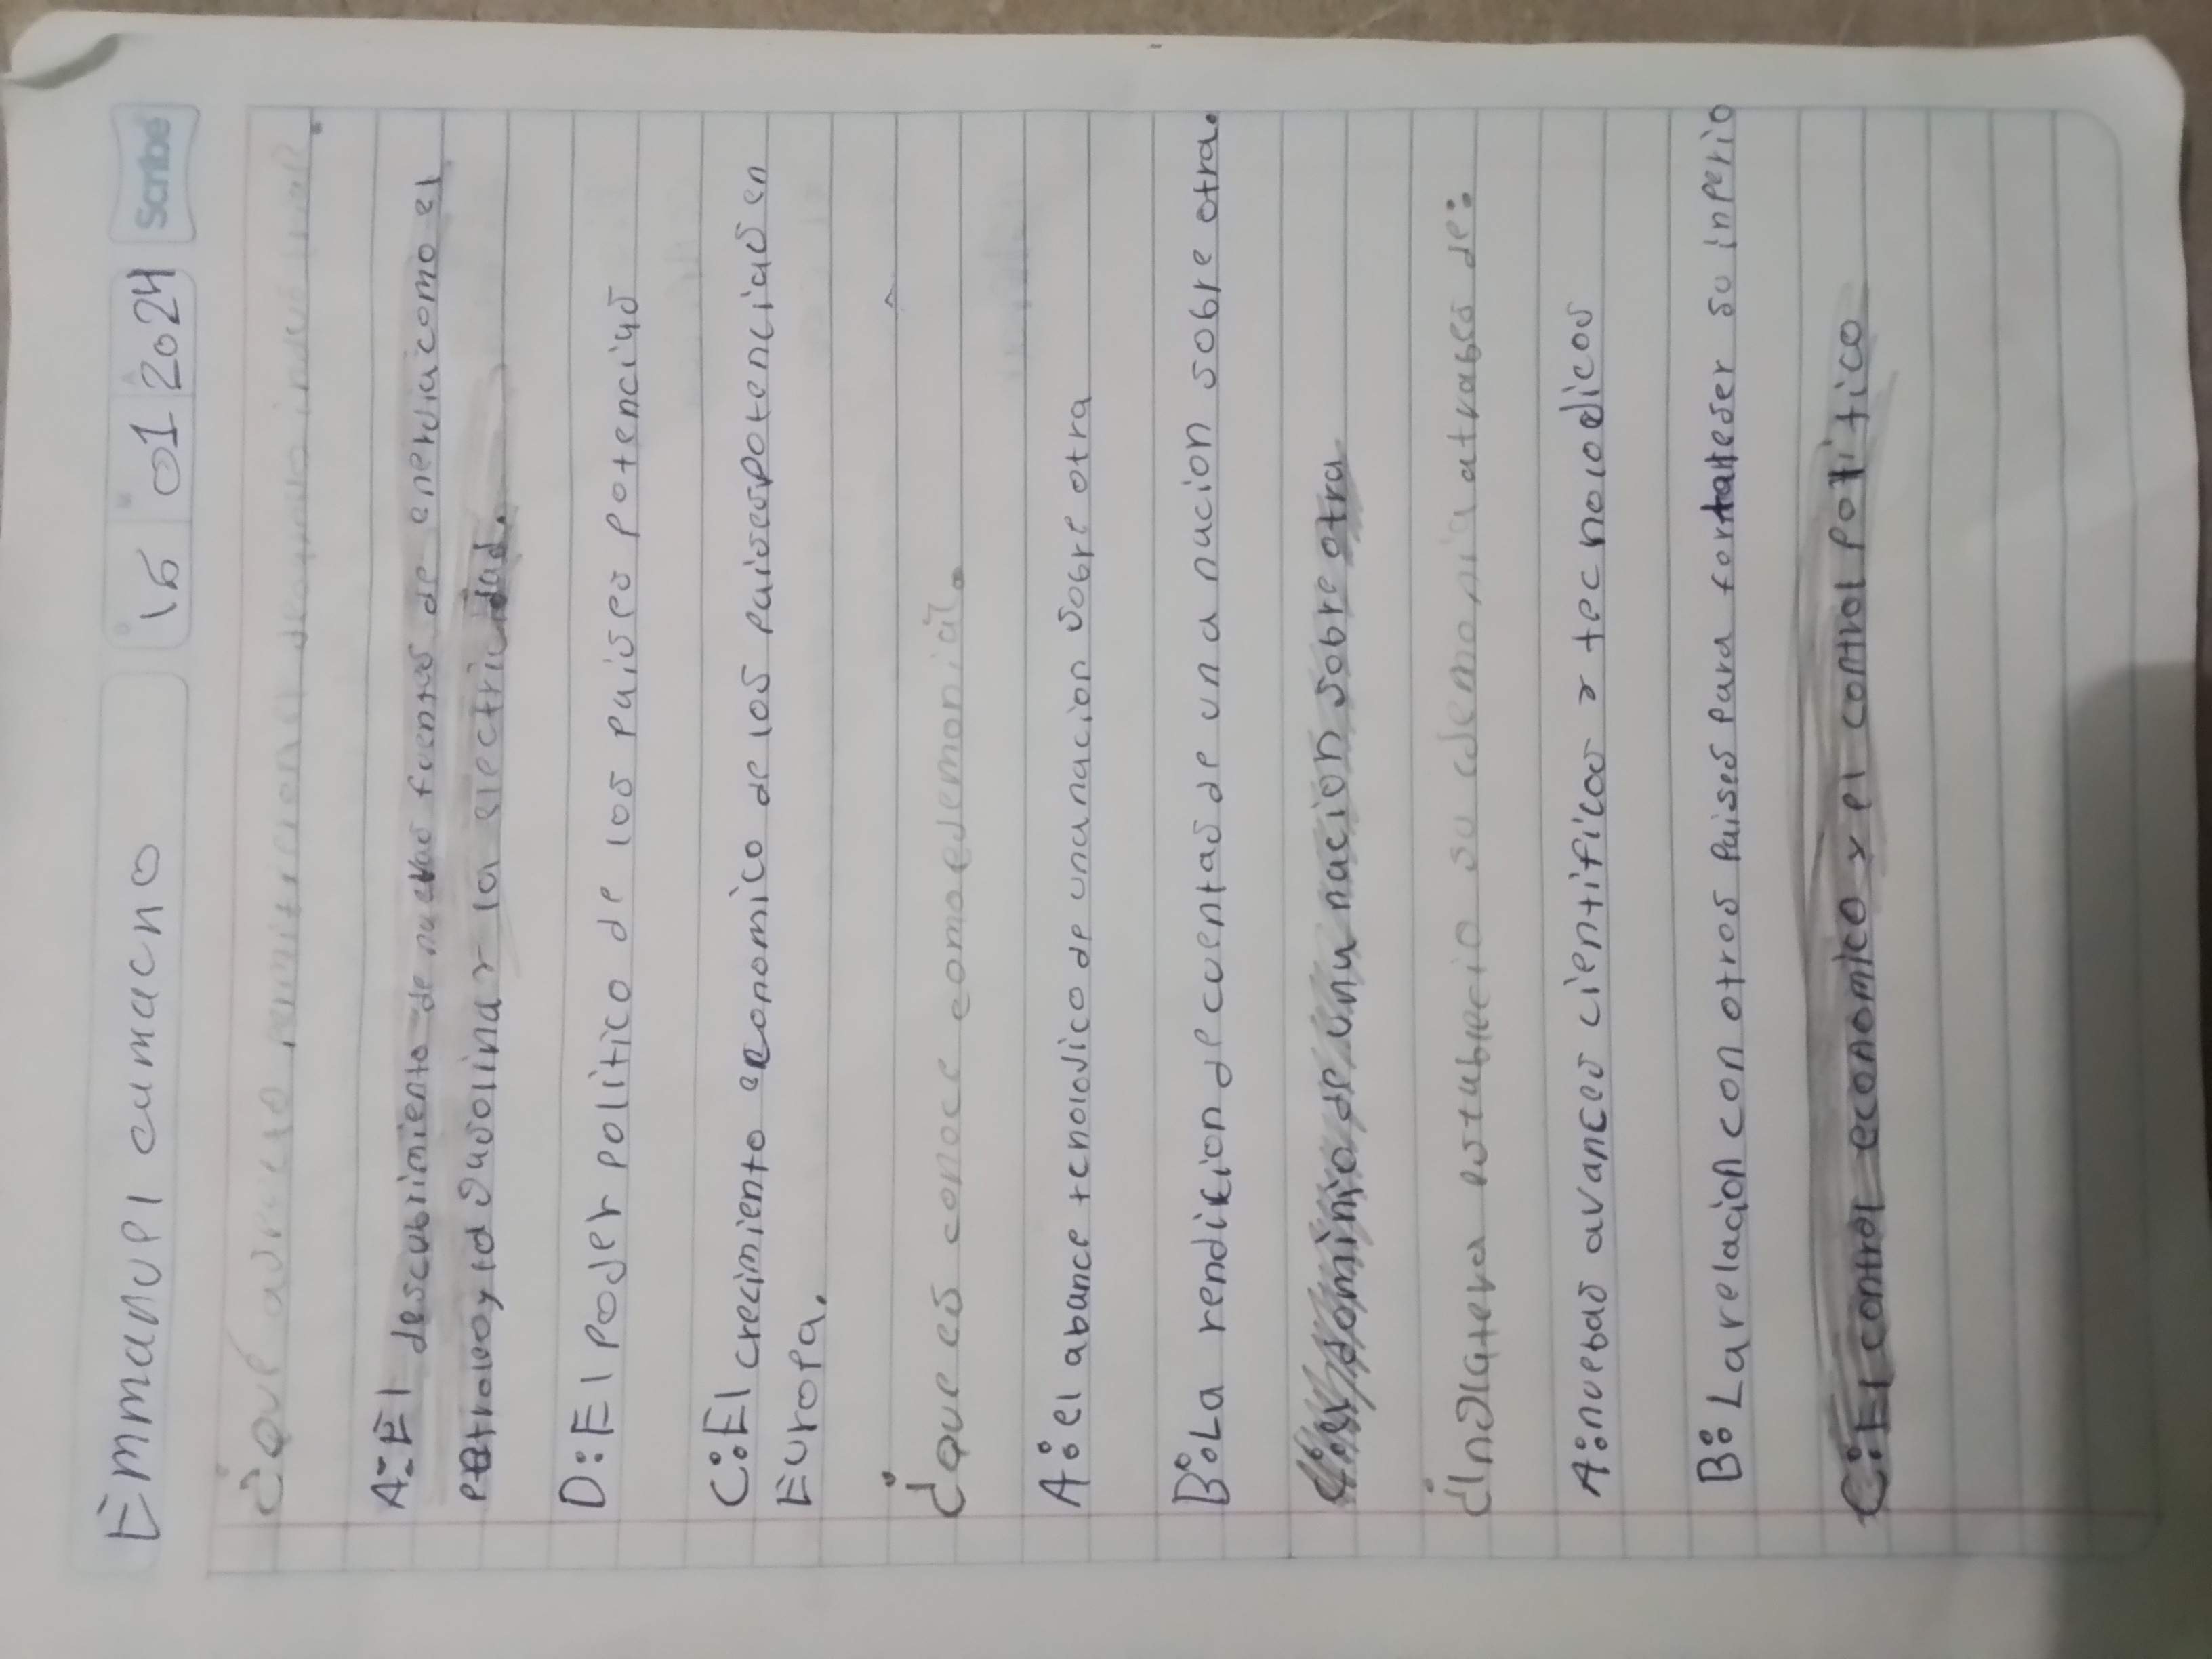 Emmanuel camacho
16 01 2024 Scribe
¿Que aspecto permitieron la segunda industrial?
A: El descubrimiento de nuevas fuentes de energia como el
petroleo, la gasolina y la electricidad.
D: El Poder politico de los paises potencias
C: El crecimiento economico de los paises potencias en
Europa.
¿que es conoce como egemonia?.
A: el abance tecnologico de una nacion sobre otra
B: La rendicion de cuentas de un a nacion sobre otra.
C: el dominio de una nacion sobre otra
¿Inglatera establecio su egemonia atrabes de:
A: nuebas avances cientificos y tecnologicos
B: La relacion con otros paises para fortaleser su inperio
C: El control economico y el control politico